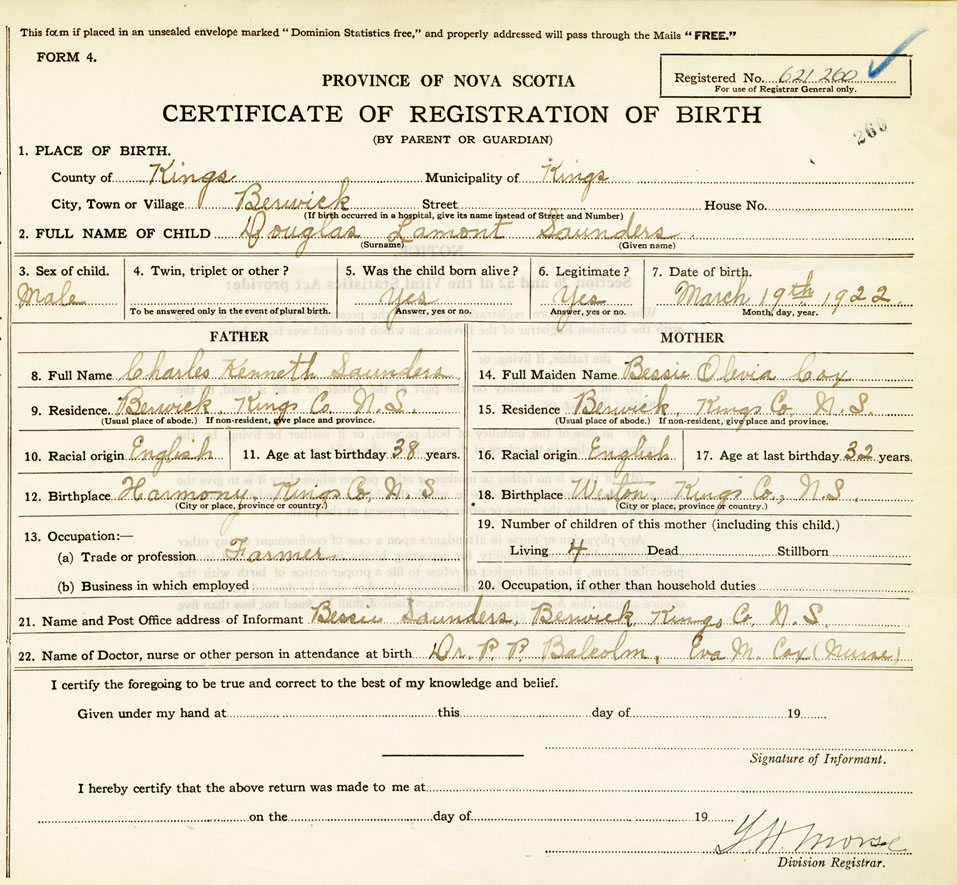 This form if placed in an unsealed envelope marked "Dominion Statistics free," and properly addressed will pass through the Mails "FREE."
FORM 4.
Registered No. 621260
For use of Registrar General only.
PROVINCE OF NOVA SCOTIA
CERTIFICATE OF REGISTRATION OF BIRTH
(BY PARENT OR GUARDIAN)
260
1. PLACE OF BIRTH.
County of Kings Municipality of Kings
City, Town or Village Berwick Street House No.
(If birth occurred in a hospital, give its name instead of Street and Number)
2. FULL NAME OF CHILD Douglas Lamont Saunders.
(Surname) (Given name)
3. Sex of child. 4. Twin, triplet or other? 5. Was the child born alive? 6. Legitimate? 7. Date of birth.
Male Yes Yes March 19th 1922.
To be answered only in the event of plural birth. Answer, yes or no. Answer, yes or no. Month, day, year.
FATHER
8. Full Name Charles Kenneth Saunders
9. Residence. Berwick, Kings Co. N.S.
(Usual place of abode.) If non-resident, give place and province.
10. Racial origin English 11. Age at last birthday 38 years.
12. Birthplace Harmony, Kings Co, N.S.
(City or place, province or country.)
13. Occupation:—
(a) Trade or profession Farmer
(b) Business in which employed
MOTHER
14. Full Maiden Name Bessie Olevia Cox
15. Residence Berwick, Kings Co. N.S.
(Usual place of abode.) If non-resident, give place and province.
16. Racial origin English 17. Age at last birthday 32 years.
18. Birthplace Weston, Kings Co., N.S.
(City or place, province or country.)
19. Number of children of this mother (including this child.)
Living 4 Dead Stillborn
20. Occupation, if other than household duties
21. Name and Post Office address of Informant Bessie Saunders, Berwick, Kings Co, N.S.
22. Name of Doctor, nurse or other person in attendance at birth Dr. P. P. Balcolm, Eva M. Cox (Nurse)
I certify the foregoing to be true and correct to the best of my knowledge and belief.
Given under my hand at this day of 19
Signature of Informant.
I hereby certify that the above return was made to me at
on the day of 19
Morse
Division Registrar.